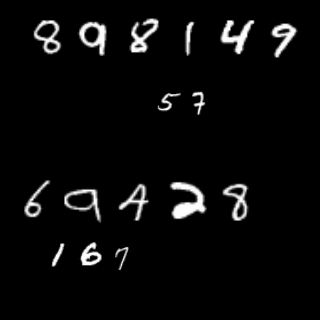 898149
57
69428
167